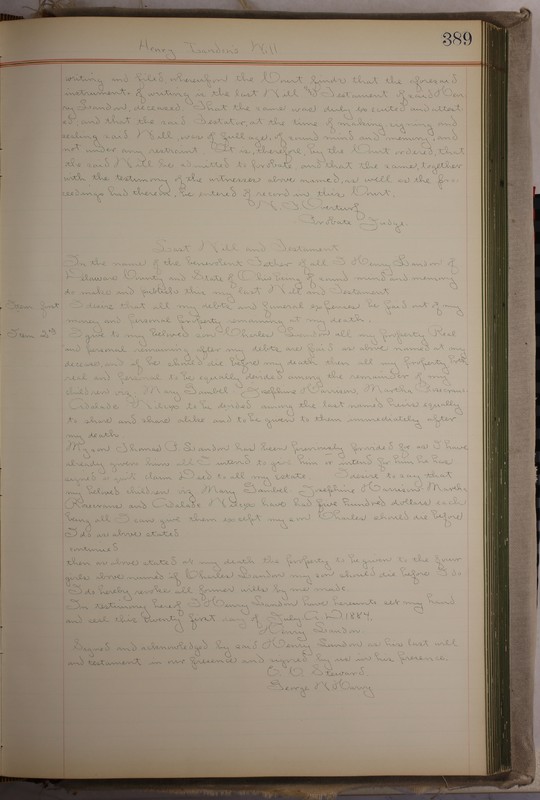 389
Henry Landon's Will
writing and filed whereupon the Court finds that the aforesaid
instrument of writing is the last Will & Testament of said Hen
ry Landon, deceased. That the same was duly executed and attest
ed and that the said Testator, at the time of making signing and
sealing said Will, was of full age, of sound mind and memory, and
not under any restraint. It is, therefore, by the Court ordered, that
the said Will be admitted to probate, and that the same, together
with the testimony of the witnesses above named, as well as the pro-
ceedings had therein, be entered of record in this Court.
Probate Judge.
Last Will and Testament
In the name of the benevolent Father of all I Henry Landon of
Delaware County and State of Ohio being of sound mind and memory
do make and publish this my last Will and Testament
Item first I desire that all my debts and funeral expenses be paid out of my
money and personal property remaining at my death.
Item 2nd I give to my beloved son Charles Landon all my property Real
and personal remaining after my debts are paid as above named at my
decease, and if he should die before my death then all my property both
real and personal to be equally divided among the remainder of my
children viz. Mary Josephine Harrison, Martha
Adelade to be divided among the last named heirs equally
to share and share alike and to be given to them immediately after
my death
My son Thomas Landon has been previously provided for as I have
already given him all I intend to give him or intend for him he has
signed a quit claim deed to all my estate. I desire to say that
my beloved children viz Mary Josephine Harrison Martha
and Adelade have had five hundred dollars each
being all I can give them except my son Charles should die before
I do as above stated
continued
then as above stated at my death the property to be given to the four
girls above named if Charles Landon my son should die before I do
I do hereby revoke all former wills by me made.
In testimony hereof I Henry Landon have hereunto set my hand
and seal this twenty first day of July A.D. 1884.
Henry Landon
Signed and acknowledged by said Henry Landon as his last will
and testament in our presence and signed by us in his presence
Steward
George